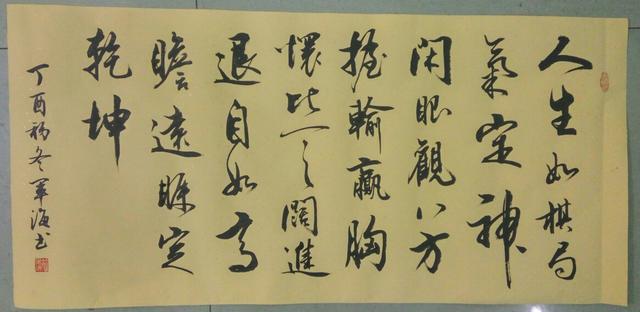 人生如棋局
氣定神
閑眼觀八方
握輸贏胸
懷比天闊進
退自如高
瞻遠矚定
乾坤
丁酉初冬軍海書